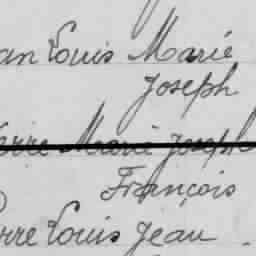 an Louis Marie
Joseph
erre Marie Joseph
François
erre Louis Jean